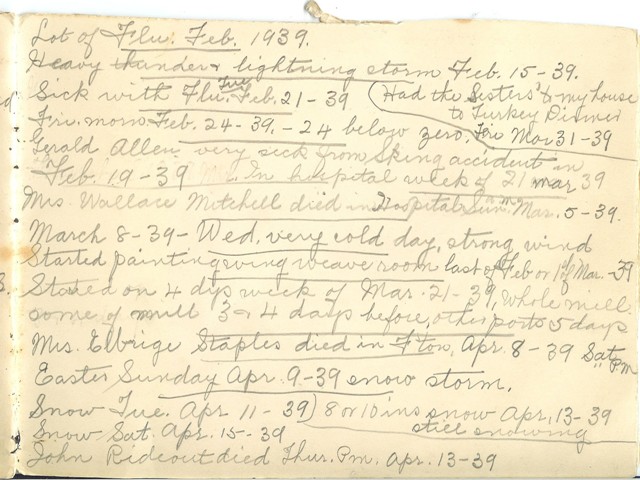 Lot of Flu. Feb. 1939.
Heavy thunder & lightning storm Feb. 15-39.
Sick with Flu. Tues Feb. 21-39 (Had the Sisters to my house
to Turkey Dinner
Fri. morn Feb. 24-39, -24 below zero, Fri Mar 31-39
Gerald Allen very sick from Skiing accident in
Feb. 19-39 In hospital week of 21 mar 39
Mrs. Wallace Mitchell died in Hospital Sun. Mar. 5-39.
March 8-39- Wed, very cold day, strong wind
Started painting wing weave room last of Feb or 1st of Mar.-39
Staved on 4 dys week of Mar. 21-39, Whole mill.
some of mill 3 or 4 days before, other parts 5 days
Mrs. Elbrige Staples died in F tow, Apr. 8-39 Sat. Pm
Easter Sunday Apr. 9-39 snow storm.
Snow Tue. Apr 11-39) 8 or 10 ins snow Apr. 13-39
still snowing
Snow Sat. Apr. 15-39
John Rideout died Thur. Pm. Apr. 13-39